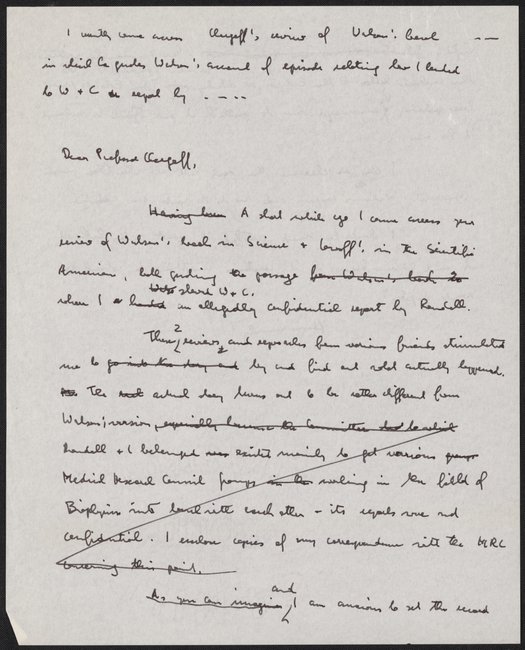 I recently came across Chargaff's review of Watson's book --
in which he quotes Watson's account of episode relating how I handed
to W + C a report by ....
Dear Professor Chargaff,
Having been A short while ago I came across your
review of Watson's book in Science + Lwoff's in the Scientific
American, both quoting the passage from Watson's book
when I handed showed W + C. an allegedly confidential report by Randall.
These 2 reviews, and reproaches from various friends stimulated
me to go into the story and try and find out what actually happened.
The actual story turns out to be rather different from
Watson's version, especially because the Committee to which
Randall + I belonged was existed mainly to get various groups
Medical Research Council groups in the working in the field of
Biophysics into touch with each other - its reports were not
confidential. I enclose copies of my correspondence with the MRC
covering this point.
As you can imagine, and I am anxious to set the record